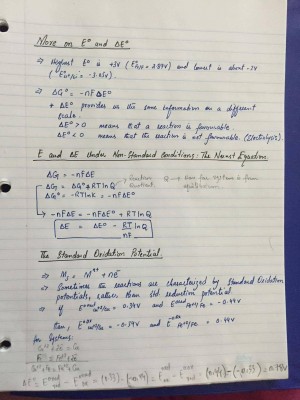 More on E° and ΔE°
⇒ Highest E° is +3V (E°F₂/F⁻ = 2.87V) and lowest is about -3V
⇒ ΔG° = -nFΔE°
+ ΔE° provides us the same information on a different
scale.
ΔE° > 0 means that a reaction is favourable
ΔE° < 0 means that the reaction is not favourable. (Electrolysis).
E and ΔE Under Non-Standard Conditions: The Nernst Equation
ΔG = -nFΔE
ΔG = ΔG° + RTlnQ Reaction Quotient Q → how far system is from equilibrium
ΔG° = -RTlnK = -nFΔE°
→ -nFΔE = -nFΔE° + RTlnQ
ΔE = ΔE° - RT/nF lnQ
The Standard Oxidation Potential.
⇒ Sometimes the reactions are characterized by Standard Oxidation
potentials, rather than std reduction potential
⇒ if = 0.34V and = -0.44V
then, = -0.34V and = 0.44V
for Systems: